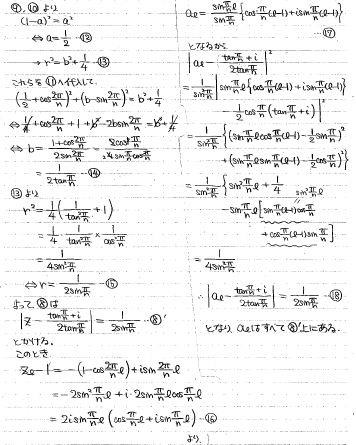 ⑨, ⑩より
(1-a)² = a²
⇔ a = 1/2 -⑫
→ r² = b² + 1/4 -⑬
これらを⑪へ代入して、
(1/2 + cos 2π/n)² + (b - sin 2π/n)² = b² + 1/4
⇔ 1/4 + cos 2π/n + 1 + b² - 2b sin 2π/n = b² + 1/4
⇔ b = (1 + cos 2π/n)/(2 sin 2π/n) = 2cos² π/n / (2·2 sin π/n cos π/n)
= 1/(2 tan π/n) -⑭
⑬より
r² = 1/4 (1/tan² π/n + 1)
= 1/4 · 1/tan² π/n × 1/cos² π/n
= 1/(4 sin² π/n)
⇔ r = 1/(2 sin π/n) -⑮
よって⑧は
|z - (tan π/n + i)/(2 tan π/n)| = 1/(2 sin π/n) -⑧'
とかける。
このとき
= -(1 - cos 2π/n l) + i sin 2π/n l
= -2 sin² π/n l + i·2 sin π/n l cos π/n l
= 2i sin π/n l (cos π/n l + i sin π/n l) -⑯
より、
a_l = (sin π/n l)/(sin π/n) {cos π/n (l-1) + i sin π/n (l-1)}
-⑰
となるから
|a_l - (tan π/n + i)/(2 tan π/n)|²
= 1/(sin² π/n) |sin π/n l {cos π/n (l-1) + i sin π/n (l-1)}
- 1/2 cos π/n (tan π/n + i)|²
= 1/(sin² π/n) {(sin π/n l cos π/n (l-1) - 1/2 sin π/n)²
+ (sin π/n l sin π/n (l-1) - 1/2 cos π/n)²}
= 1/(sin² π/n) {sin² π/n l + 1/4
sin π/n l
- sin π/n l [sin π/n (l-1) cos π/n
+ cos π/n (l-1) sin π/n]}
= 1/(4 sin² π/n)
∴ |a_l - (tan π/n + i)/(2 tan π/n)| = 1/(2 sin π/n) -⑱
となり a_l はすべて⑧'上にある。